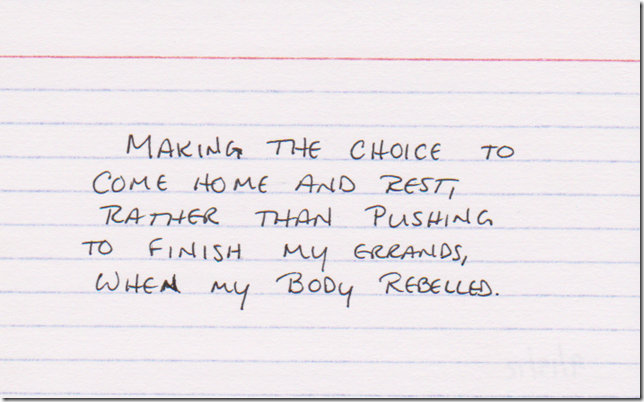 MAKING THE CHOICE TO
COME HOME AND REST,
RATHER THAN PUSHING
TO FINISH MY ERRANDS,
WHEN MY BODY REBELLED.